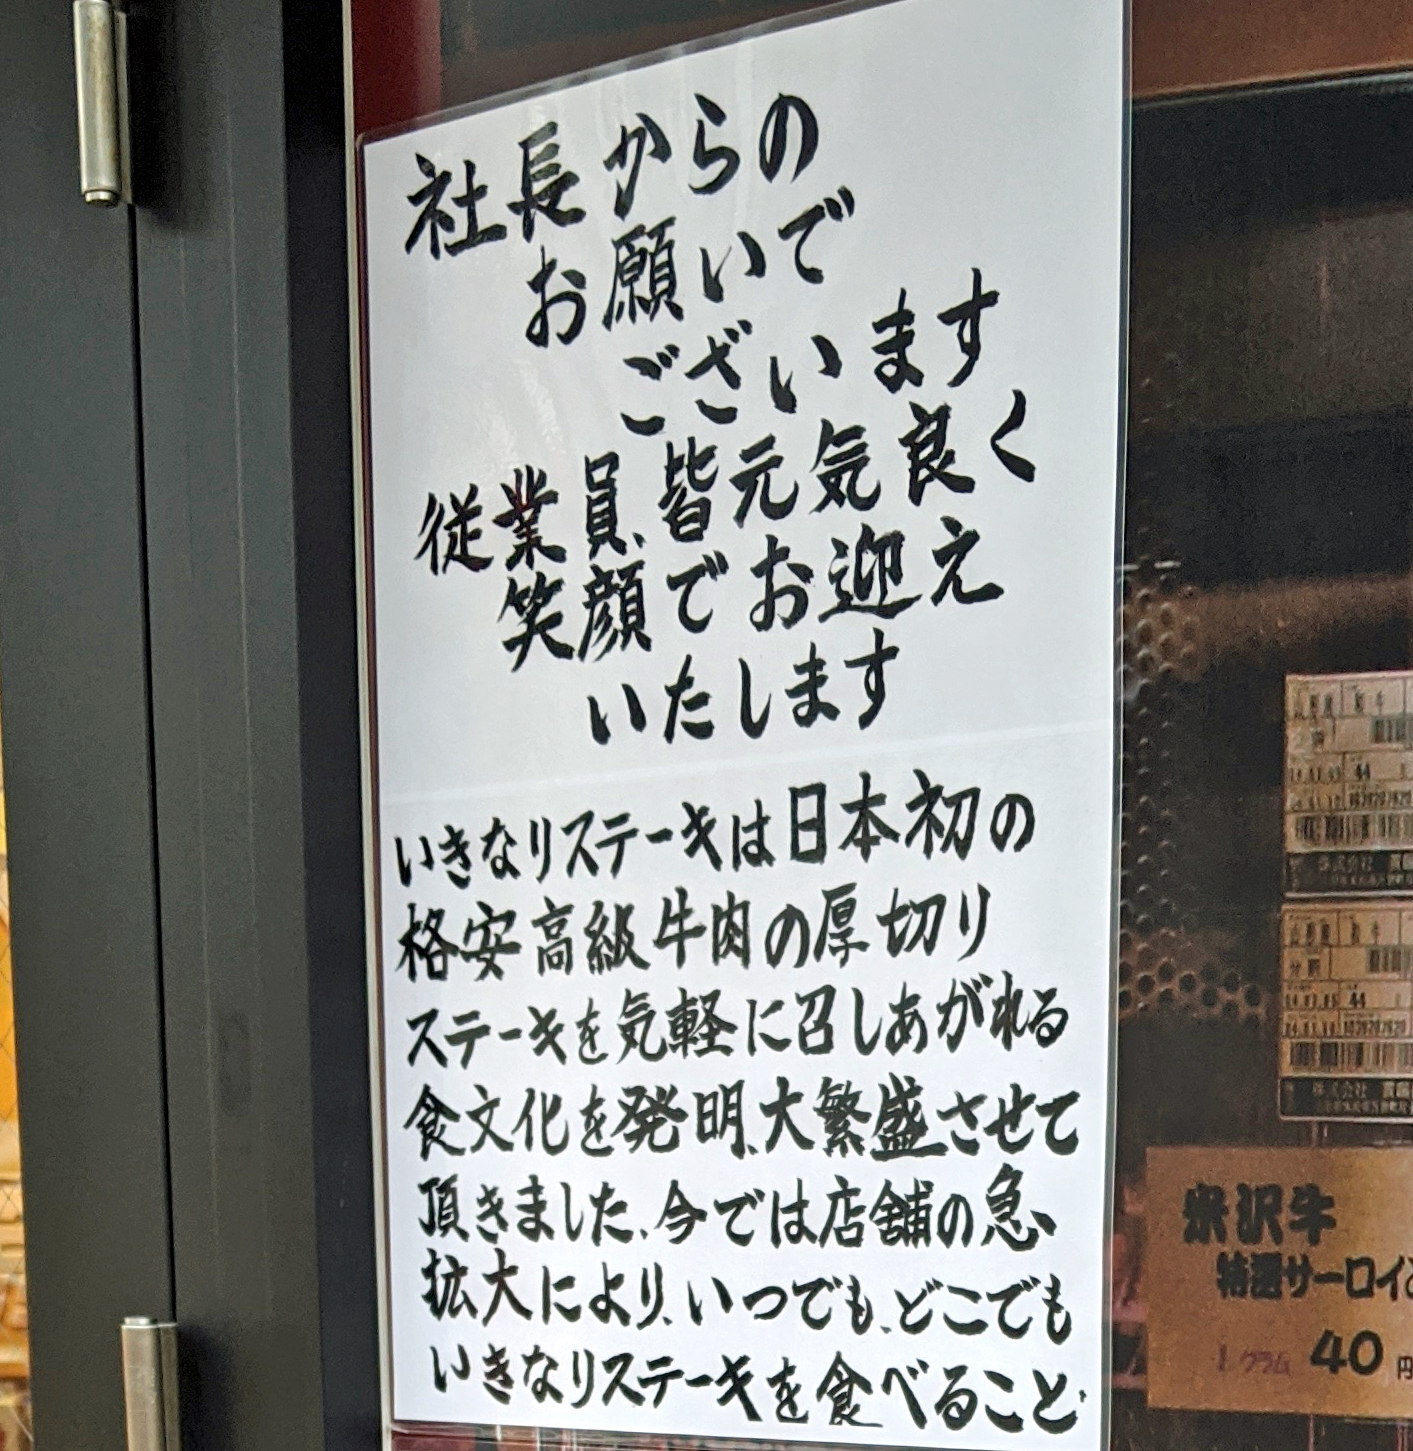 社長からの
お願いで
ございます
従業員、皆元気良く
笑顔でお迎え
いたします
いきなりステーキは日本初の
格安高級牛肉の厚切り
ステーキを気軽に召しあがれる
食文化を発明、大繁盛させて
頂きました、今では店舗の急
拡大により、いつでも、どこでも
いきなりステーキを食べること
44
株式会社
44
株式会社
米沢牛
特選サーロイン
1グラム 40円